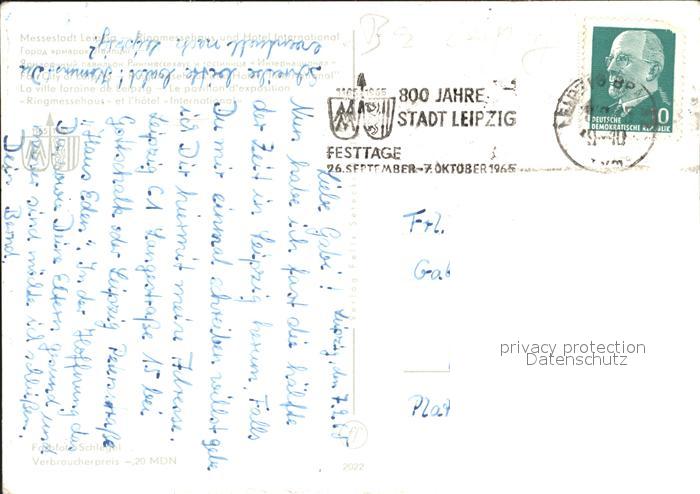 Messestadt Leipzig - Ringmessehaus und Hotel International
La ville foraine de Leipzig - Le pavillon d'exposition
«Ringmessehaus» et l'hôtel «International»
1165 1965
800 JAHRE
STADT LEIPZIG
FESTTAGE
26.SEPTEMBER-7.OKTOBER 1965
DEUTSCHE
DEMOKRATISCHE REPUBLIK
10
Leipzig, den 7.9.65
Liebe Gabi!
Nun habe ich fast die hälfte
der Zeit in Leipzig herum. Falls
Du mir einmal schreiben willst gebe
ich Dir hiermit meine Adresse.
Leipzig C1 Langestraße 15 bei
Gottschalk oder Leipzig
"Haus Eden". In der Hoffnung das
Du sowie Deine Eltern gesund und
munter sind möchte ich schließen.
Dein Bernd
Schreibe bitte bald! Kommst Du
eventuell nach Leipzig?
Frl.
Gab
Plat
privacy protection
Datenschutz
Farbfoto Schlegel
Verbraucherpreis -,20 MDN
2022